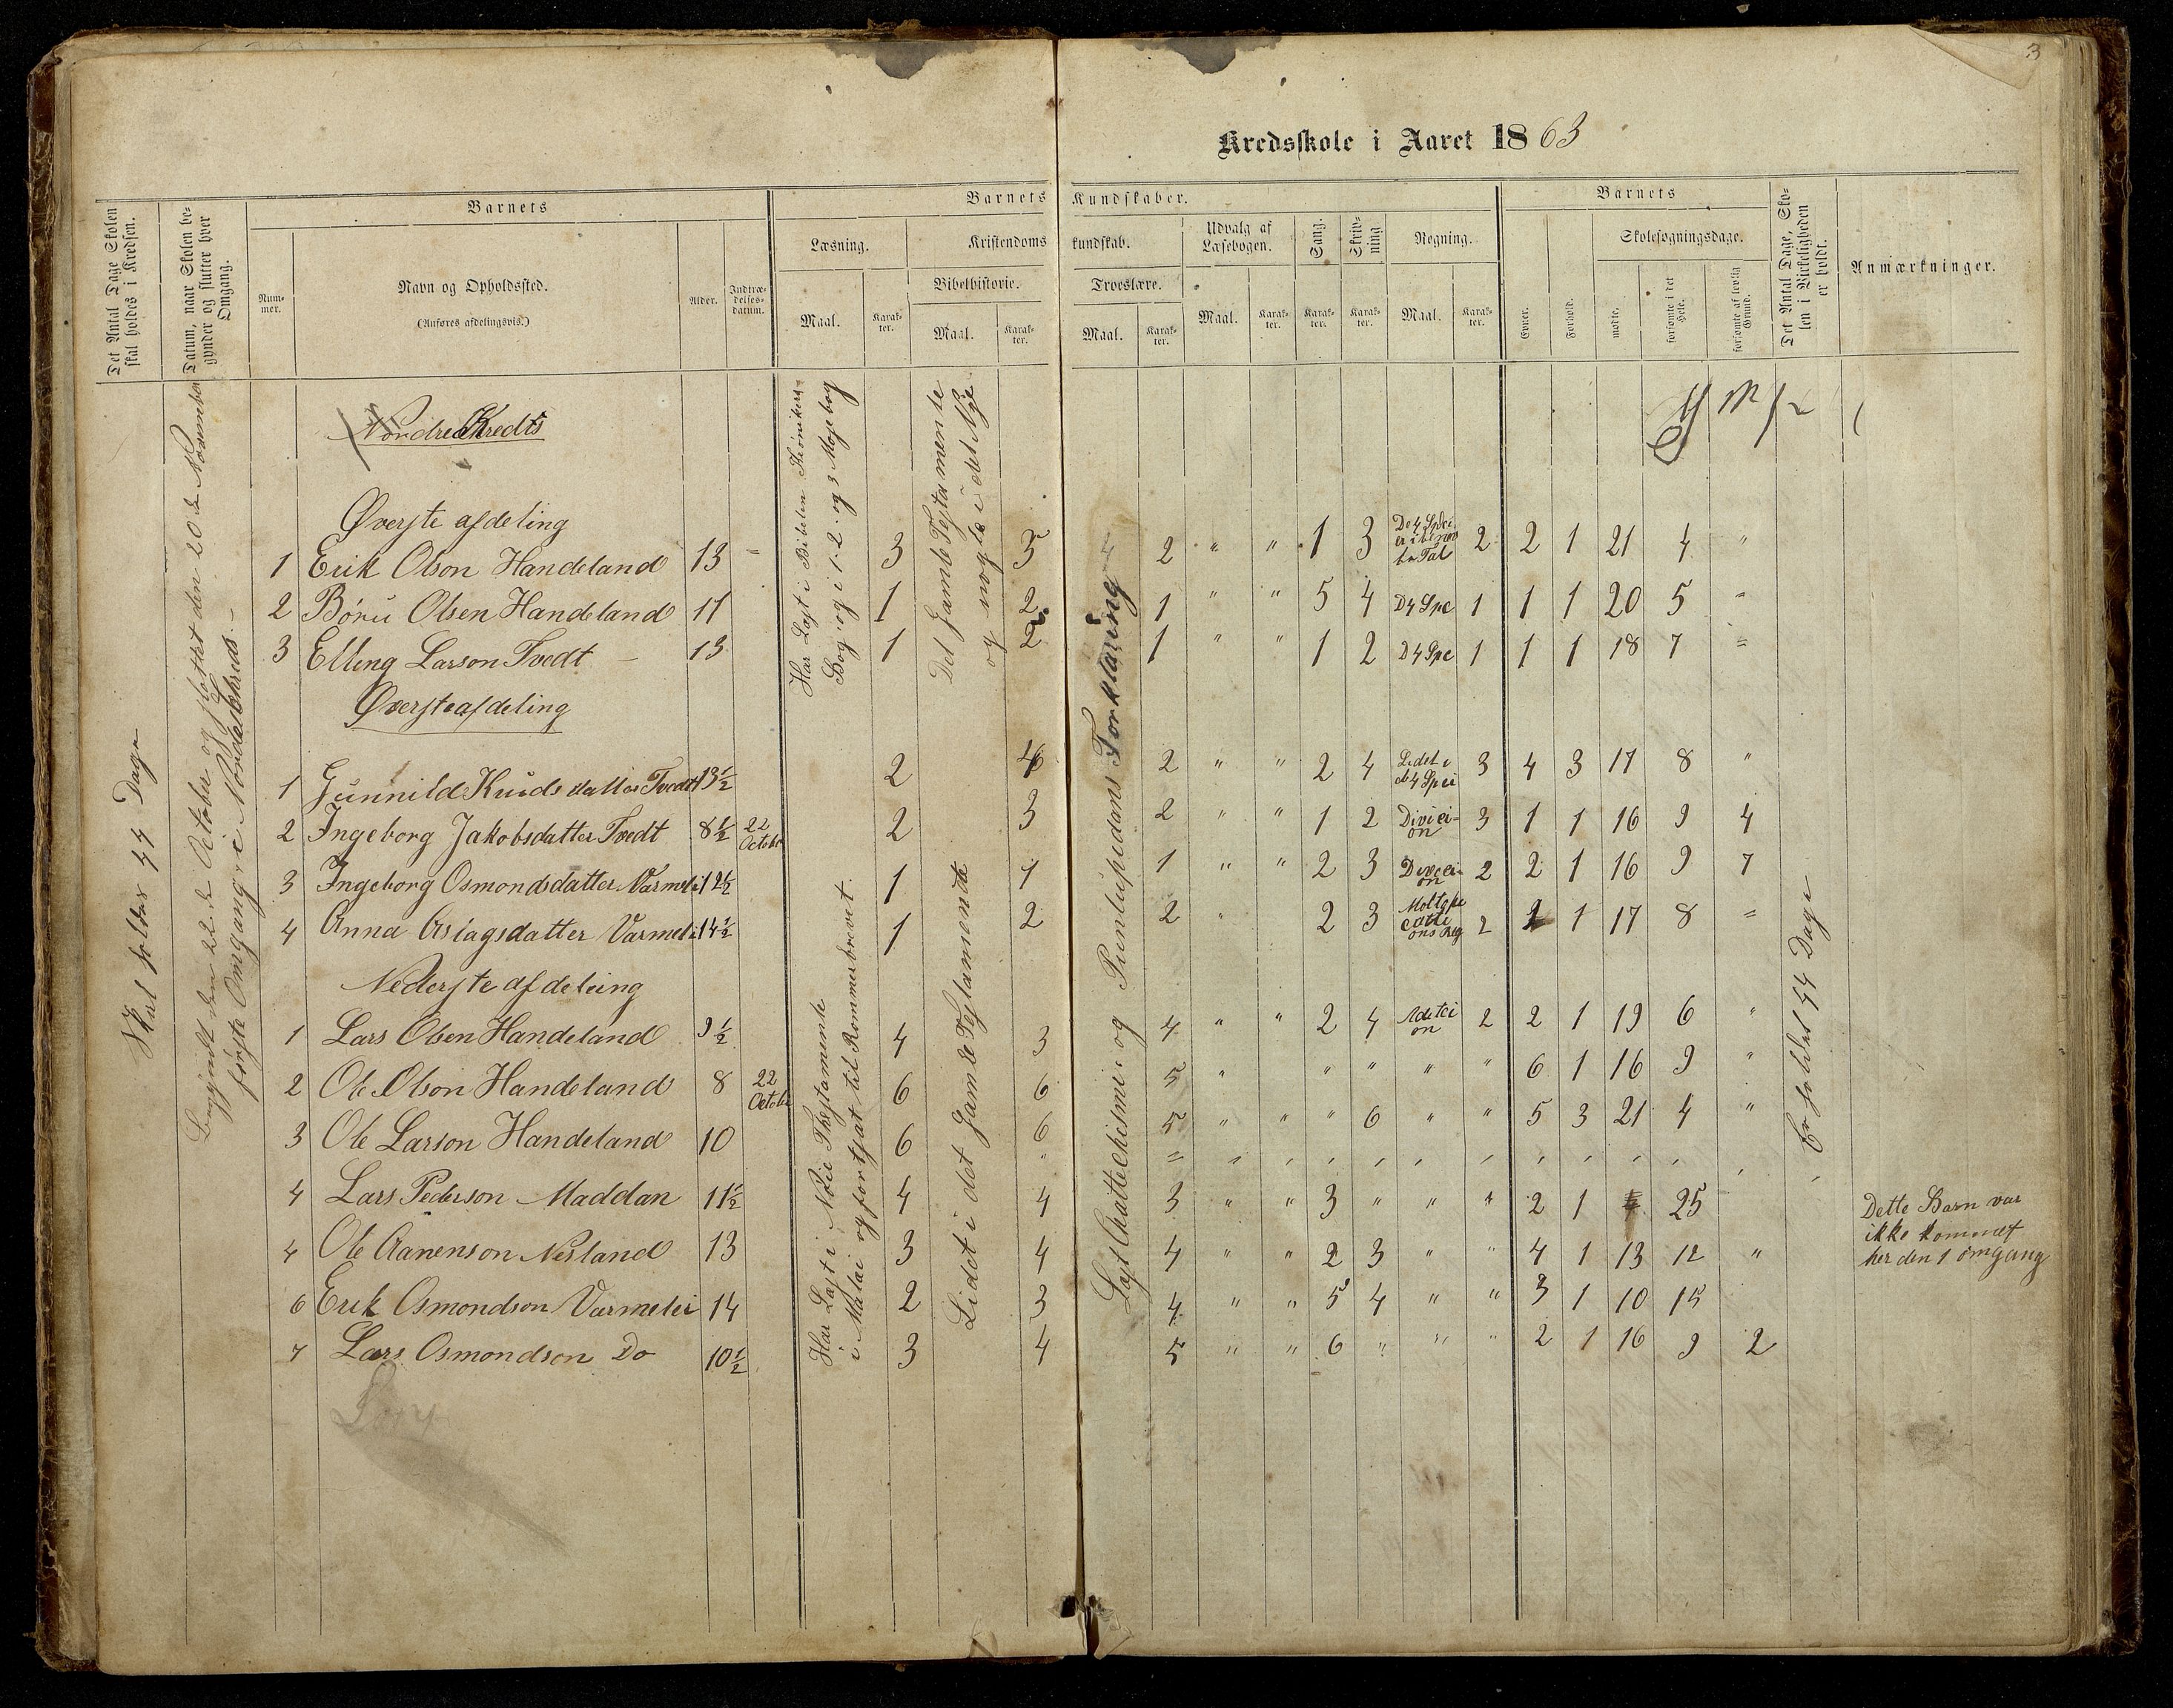 3
Kredsskole i Aaret 1863
Det Antal Dage Skolen skal holdes i Kredsen.
Datum, naar Skolen begynder og slutter hver Omgang.
Barnets
Nummer.
Navn og Opholdssted.
(Anføres afdelingsvis.)
Alder.
Indtrædelsesdatum.
Barnets Kundskaber.
Læsning.
Maal.
Karakter.
Kristendomskundskab.
Bibelhistorie.
Maal.
Karakter.
Troeslære.
Maal.
Karakter.
Udvalg af Læsebogen.
Maal.
Karakter.
Sang.
Karakter.
Skrivning
Karakter.
Regning.
Maal.
Karakter.
Barnets
Evner.
Forhold.
Skolesøgningsdage.
mødte.
forsømte i det Hele.
forsømte af lovlig Grund.
Det Antal Dage, Skolen i Virkeligheden er holdt.
Anmærkninger.
Skal holdes 54 Dage
Begyndt den 22de October og sluttet den 20de November
første Omgang i Nordre Kreds
Nordre Kredts
Har Læst i Bibelen Krønikers
Bog og i 1. 2. og 3 Mose bog
Det Gamle Testamente
og nogle i det Nye
Læst Chattechismi og Puntuspedans Forklaring
Øverste afdeling
1 Erik Olson Handeland 13 3 5 2 " " 1 3 De 4 Spei 2 2 1 21 4 "
2 Børu Olsen Handeland 11 1 2 1 " " 5 4 D 4 Spe 1 1 1 20 5 "
3 Elling Larson Tvedt 13 1 2 1 " " 1 2 D 4 Spe 1 1 1 18 7 "
Øverste afdeling
1 Gunnild Knudsdatter Tvedt 13½ 2 4 2 " " 2 4 Lidet i de 4 Spei 3 4 3 17 8 "
2 Ingeborg Jakobsdatter Tvedt 8½ 22 October 2 3 2 " " 1 2 Divicion 3 1 1 16 9 4
3 Ingeborg Osmondsdatter Varmeli 12½ 1 1 1 " " 2 3 Divicion 2 2 1 16 9 7
4 Anna Aslagsdatter Varmeli 14½ 1 2 2 " 2 3 Moltepecations Reg 2 1 17 8 "
Nederste afdeling
Har Læst i Nøie Thestamente
i Matæi og fortsat til Rommerbrevet
Lidet i det Gamle Testamsente
1 Lars Olsen Handeland 9½ 4 3 4 " " 2 4 Adetcion 2 2 1 19 6 "
2 Ole Olson Handeland 8 22 October 6 6 5 " " " " " 6 1 16 9 "
3 Ole Larson Handeland 10 6 6 5 " " " 6 " " 5 3 21 4 "
4 Lars Pederson Maddan 11½ 4 4 3 " " 3 " " " 2 1 25
4 Ole Aanenson Nesland 13 3 4 4 " " 2 3 " " 4 1 13 12 "
6 Erik Osmondson Varmelie 14 2 3 4 " " 5 4 " " 3 1 10 15
7 Lars Osmondson Do 10½ 3 4 5 " " 6 " " " 2 1 16 9 2
Er holdet 54 Dage
Dette Barn var
ikke kommet
her den 1 omgang